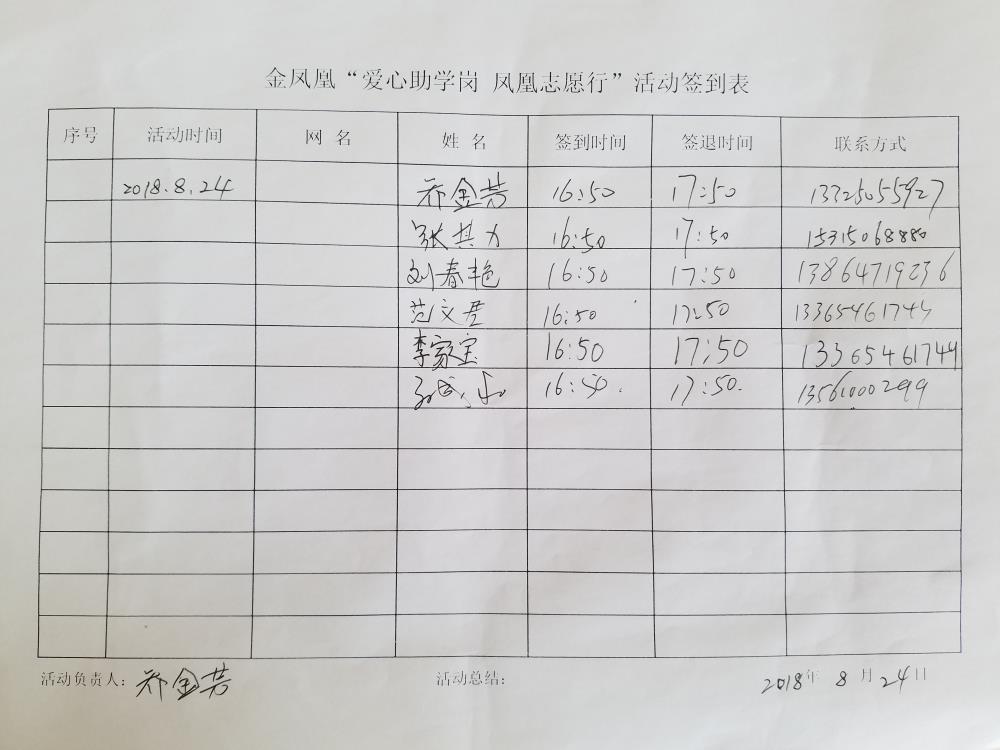 金凤凰“爱心助学岗 凤凰志愿行”活动签到表
序号 活动时间 网 名 姓 名 签到时间 签退时间 联系方式
2018.8.24 乔金芳 16:50 17:50 13725055927
张其力 16:50 17:50 15315068880
刘春艳 16:50 17:50 13864719236
范文君 16:50 17:50 13365461749
李家宝 16:50 17:50 13365461749
16:50. 17:50. 13561000299
活动负责人: 乔金芳 活动总结: 2018年 8 月 24日